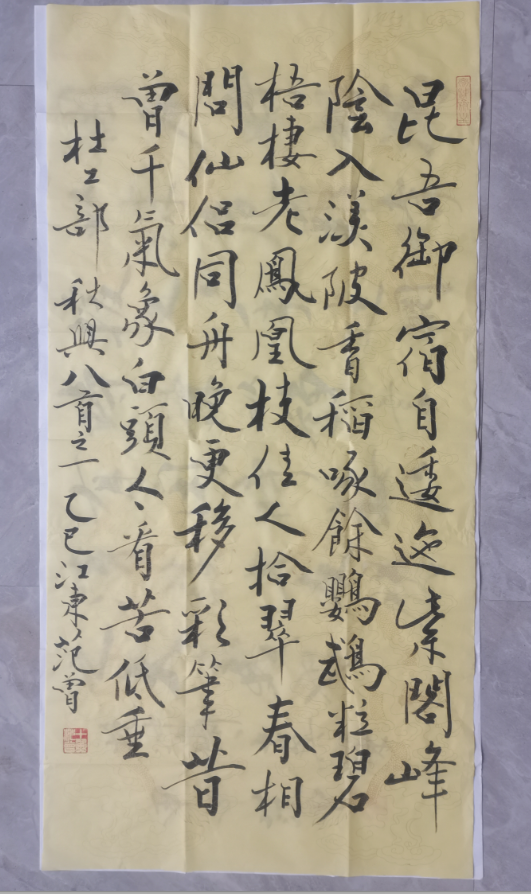 昆吾御宿自逶迤紫閣峰
陰入渼陂香稻啄餘鸚鵡粒碧
梧棲老鳳凰枝佳人拾翠春相
問仙侶同舟晚更移彩筆昔
曾千氣象白頭人看苦低垂
杜工部 秋興八首之一 乙巳江東范曾